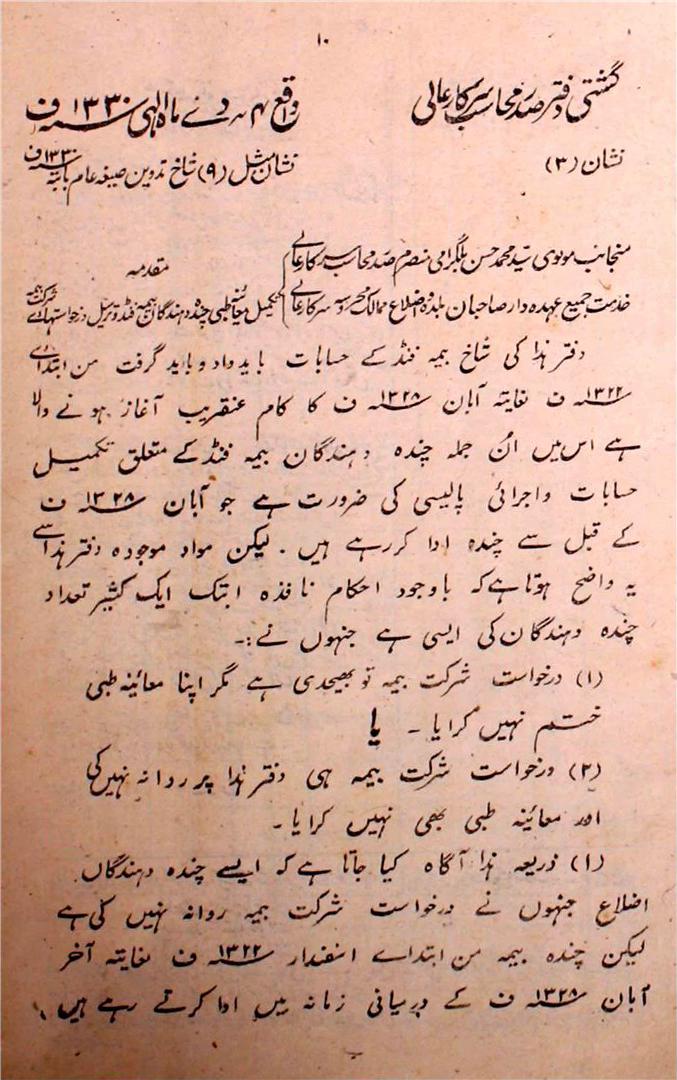 ۱۰
گشتی دفتر صدر محاسب سرکار عالی
واقع ۴ دے ماہ الٰہی ۱۳۳۰ ف
نشان (۳)
نشان مثل (۹) شاخ تدوین صیغہ عام بابتہ ۱۳۳۰ ف
منجانب مولوی سید محمد حسن بلگرامی منصرم صدر محاسب سرکار عالی
مقدمہ
خدمت جمیع عہدہ دار صاحبان بلدہ و اضلاع ممالک محروسہ سرکار عالی
تکمیل معائنہ طبی چندہ دہندگان بیمہ فنڈ و ترسیل درخواستہائے شرکت بیمہ
دفتر ہذا کی شاخ بیمہ فنڈ کے حسابات باید داد و باید گرفت من ابتدائے
۱۳۲۲ ف لغایتہ آبان ۱۳۲۸ ف کا کام عنقریب آغاز ہونے والا
ہے اس میں اُن جملہ چندہ دہندگان بیمہ فنڈ کے متعلق تکمیل
حسابات و اجرائی پالیسی کی ضرورت ہے جو آبان ۱۳۲۸ ف
کے قبل سے چندہ ادا کر رہے ہیں ۔ لیکن مواد موجودہ دفتر ہذا سے
یہ واضح ہوتا ہے کہ باوجود احکام نافذہ ابتک ایک کثیر تعداد
چندہ دہندگان کی ایسی ہے جنہوں نے :۔
(۱) درخواست شرکت بیمہ تو بھیجدی ہے مگر اپنا معائنہ طبی
ختم نہیں کرایا ۔ یا
(۲) درخواست شرکت بیمہ ہی دفتر ہذا پر روانہ نہیں کی
اور معائنہ طبی بھی نہیں کرایا ۔
(۱) ذریعہ ہذا آگاہ کیا جاتا ہے کہ ایسے چندہ دہندگان
اضلاع جنہوں نے درخواست شرکت بیمہ روانہ نہیں کی ہے
لیکن چندہ بیمہ من ابتدائے اسفندار ۱۳۲۲ ف لغایتہ آخر
آبان ۱۳۲۸ ف کے درمیانی زمانہ میں ادا کرتے رہے ہیں